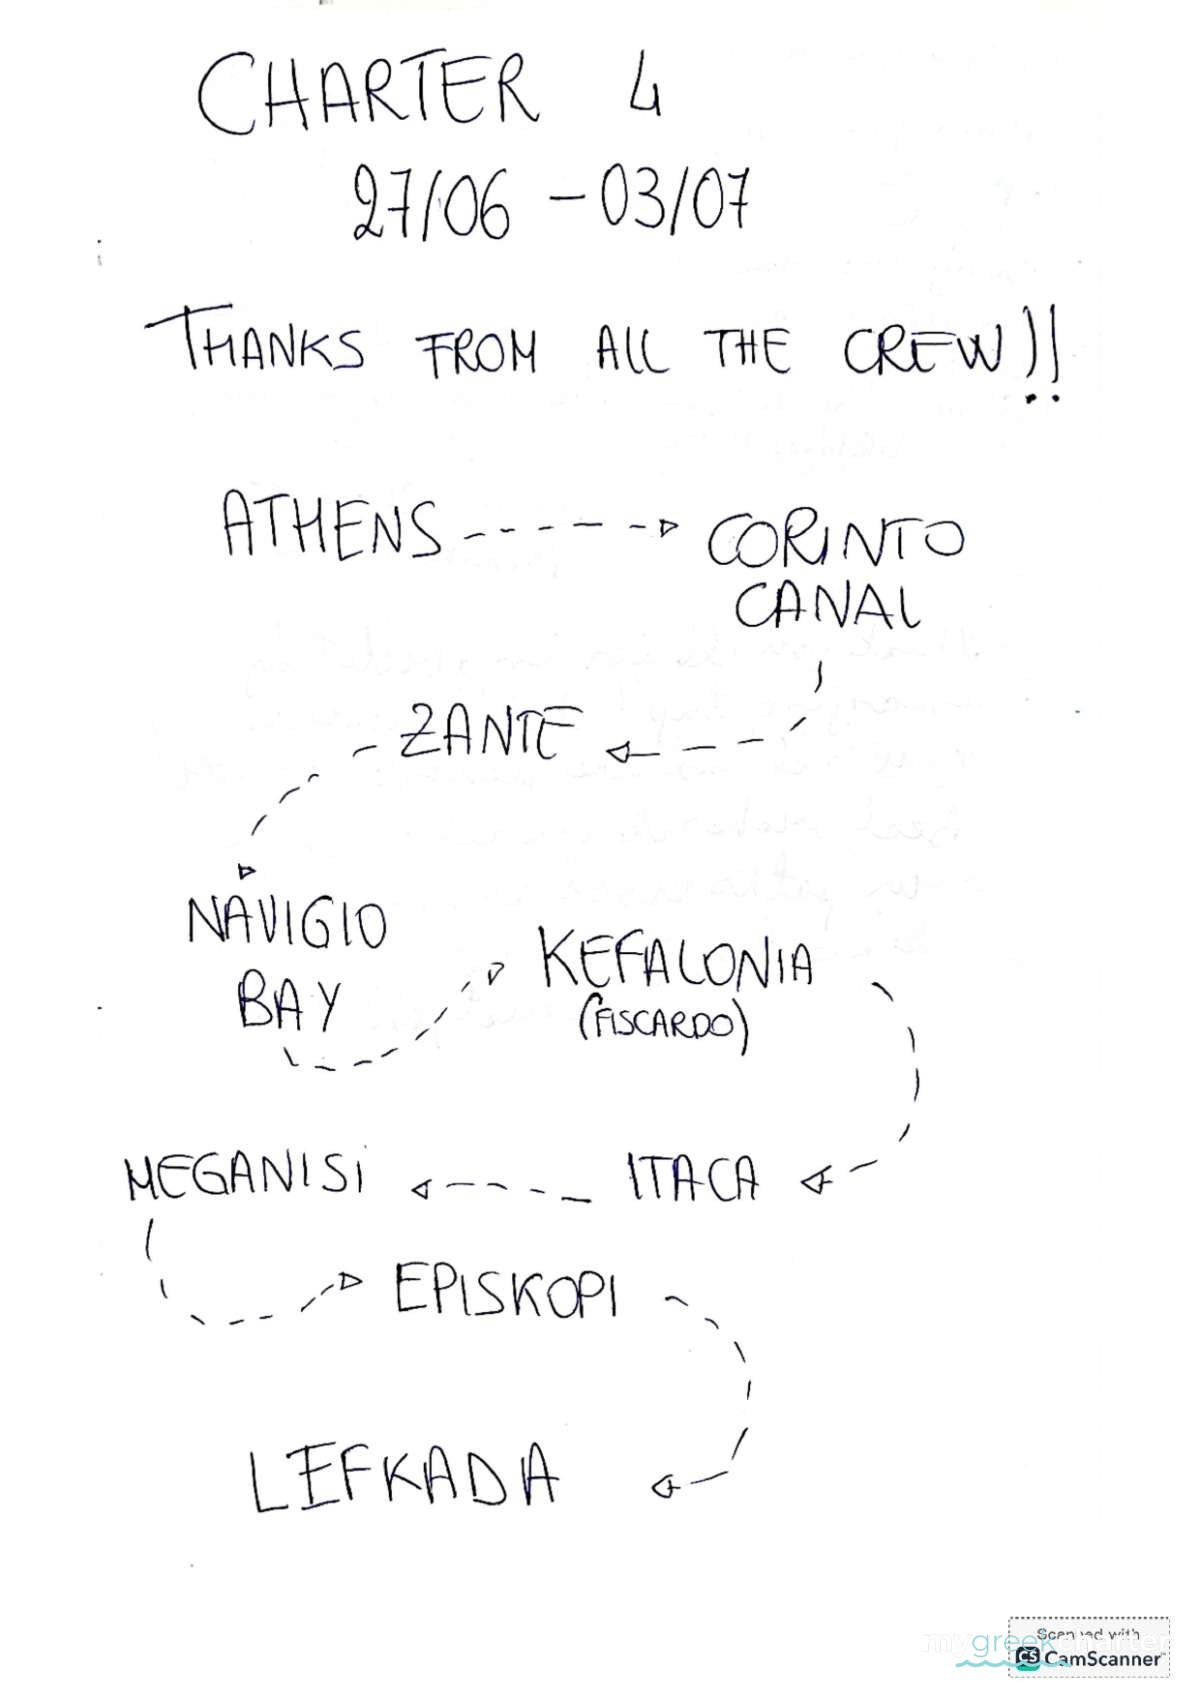 CHARTER 4
27/06 - 03/07
THANKS FROM ALL THE CREW!!
ATHENS
CORINTO
CANAL
ZANTE
NAVIGIO
BAY
KEFALONIA
(FISCARDO)
ITACA
MEGANISI
EPISKOPI
LEFKADA
Scanned with
mygreekcharter
CS CamScanner